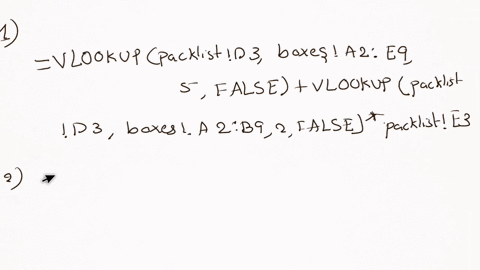 1)
=VLOOKUP(packlist!D3, boxes!A2:E9
5, FALSE)+VLOOKUP(packlist
!D3, boxes!A2:B9,2,FALSE)*packlist!E3
2)